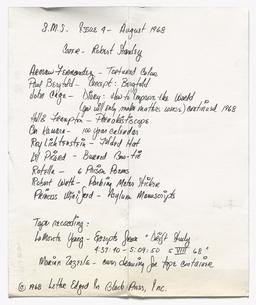 S.M.S. Issue 4 - August 1968
Cover - Robert Stanley
Arman Fernandez - Tortured Color
Paul Bergtold - Concept: Bergtold
John Cage - Diary: How to Improve the World
(you will only make matters worse) continued 1968
Hollis Frampton - Phenakistiscope
On Kawara - 100 year calendar
Roy Lichtenstein - Folded Hat
Lil Picard - Burned Bow-tie
Rotella - 6 Prison Poems
Robert Watts - Parking Meter Stickers
Princess Winifred - Asylum Manuscripts
Tape recording:
LaMonte Young - Excerpts from "Drift Study
4:37:40 - 5:09:50 5 VIII 68"
Marian Zazeela - own drawing for tape container
© 1968 Letter Edged In Black Press, Inc.